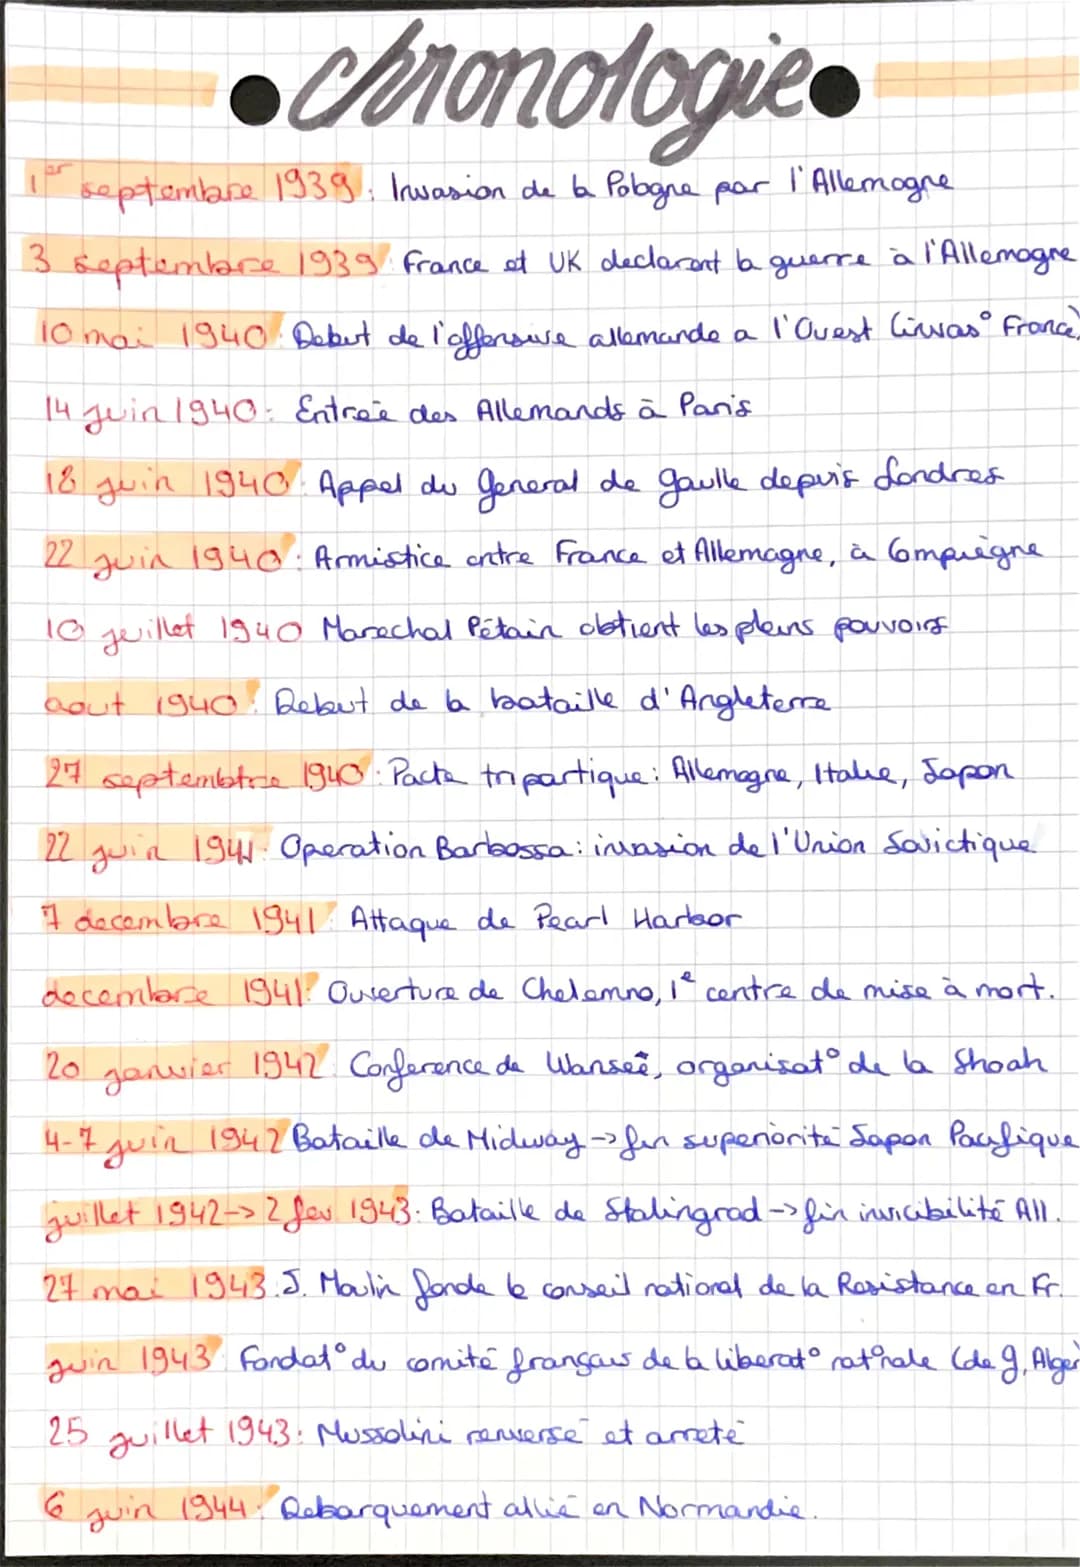 chronologie
1er septembre 1939 : Invasion de la Pologne par l'Allemagne
3 septembre 1939 : France et UK declarent la guerre à l'Allemagne
10 mai 1940 : Debut de l'offensive allemande a l'Ouest (invas° France)
14 juin 1940 : Entrée des Allemands à Paris
18 juin 1940 : Appel du General de gaulle depuis Londres
22 juin 1940 : Armistice entre France et Allemagne, à Compiègne
10 juillet 1940 Marechal Pétain obtient les pleins pouvoirs
aout 1940 : Debut de la bataille d'Angleterre
27 septembre 1940 : Pacte tripartique : Allemagne, Italie, Japon
22 juin 1941 : Operation Barbossa : invasion de l'Union Sovictique
7 decembre 1941 : Attaque de Pearl Harbor
decembre 1941 : Ouverture de Chelemno, 1e centre de mise à mort.
20 janvier 1942 : Conference de Wanseê, organisat° de la Shoah
4-7 juin 1942 Bataille de Midway -> fin superiorité Japon Pacifique
juillet 1942 -> 2 fev 1943 : Bataille de Stalingrad -> fin invicibilité All.
27 mai 1943 : J. Moulin fonde le conseil national de la Resistance en Fr.
juin 1943 : Fondat° du comité français de la liberat° nat°nale (de g, Alger)
25 juillet 1943 : Mussolini renversé et arreté
6 juin 1944 : Debarquement allié en Normandie.